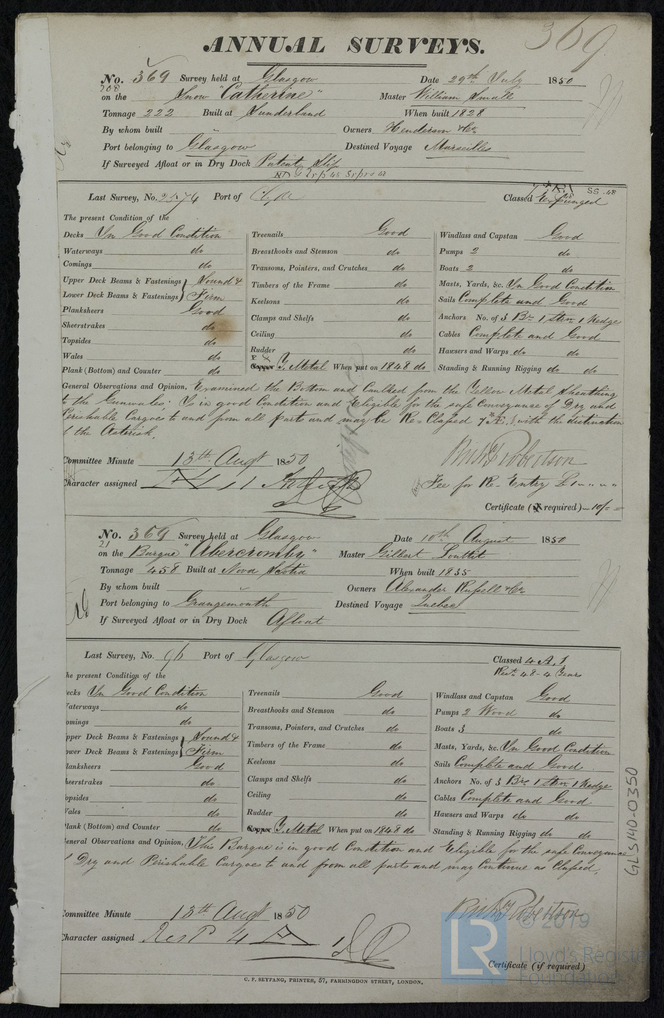 369
ANNUAL SURVEYS.
No. 369 Survey held at Glasgow Date 29th July 1850
on the Snow "Catherine" Master William Small
Tonnage 222 Built at Sunderland When built 1828
By whom built " Owners Henderson & Co
Port belonging to Glasgow Destined Voyage Marseilles
If Surveyed Afloat or in Dry Dock Patent Slip
Last Survey, No. 2574 Port of Clyde Classed Expunged
SS.48
The present Condition of the
Decks In Good Condition Treenails Good Windlass and Capstan Good
Waterways do Breasthooks and Stemson do Pumps 2 do
Comings do Transoms, Pointers, and Crutches do Boats 2 do
Upper Deck Beams & Fastenings } Sound & Timbers of the Frame do Masts, Yards, &c. In Good Condition
Lower Deck Beams & Fastenings } Firm Keelsons do Sails Complete and Good
Planksheers Good Clamps and Shelfs do Anchors No. of 3 Br 1 Strm 1 Kedge
Sheerstrakes do Ceiling do Cables Complete and Good
Topsides do Rudder do Hawsers and Warps do do
Wales do
Plank (Bottom) and Counter do Copper Y. Metal When put on 1848 do Standing & Running Rigging do do
General Observations and Opinion, Examined the Bottom and Caulked from the Yellow Metal Sheathing
to the Gunwales. Is in good Condition and Eligible for the safe Conveyance of Dry and
Perishable Cargoes to and from all parts and may be Re-Classed Æ 1 with the distinction
of the Asterisk.
Committee Minute 13th Augt 1850
Character assigned
Fee for Re-Entry
Certificate (if required) 10/
No. 369 Survey held at Glasgow Date 10th August 1850
21
on the Barque "Abercromby" Master Gilbert Louttit
Tonnage 458 Built at Nova Scotia When built 1835
By whom built " Owners Alexander Russell & Co
Port belonging to Grangemouth Destined Voyage Quebec
If Surveyed Afloat or in Dry Dock Afloat
Last Survey, No. 96 Port of Glasgow Classed 4 A 1
Rest. 48-4 Years
he present Condition of the
ecks In Good Condition Treenails Good Windlass and Capstan Good
aterways do Breasthooks and Stemson do Pumps 2 Wood do
omings do Transoms, Pointers, and Crutches do Boats 3 do
pper Deck Beams & Fastenings } Sound & Timbers of the Frame do Masts, Yards, &c. In Good Condition
ower Deck Beams & Fastenings } Firm Keelsons do Sails Complete and Good
lanksheers Good Clamps and Shelfs do Anchors No. of 3 Br 1 Strm 1 Kedge
heerstrakes do Ceiling do Cables Complete and Good
opsides do Rudder do Hawsers and Warps do do
ales do
lank (Bottom) and Counter do Copper Y. Metal When put on 1848 do Standing & Running Rigging do do
eneral Observations and Opinion, This Barque is in good Condition and Eligible for the safe Conveyance
of Dry and Perishable Cargoes to and from all parts and may Continue as Classed,
ommittee Minute 13th Augt 1850
Character assigned Rest 4 A 1
Certificate (if required)
C. F. SEYFANG, PRINTER, 57, FARRINGDON STREET, LONDON.
GLS140-0350
LR
© 2019
Lloyd's Register
Foundation